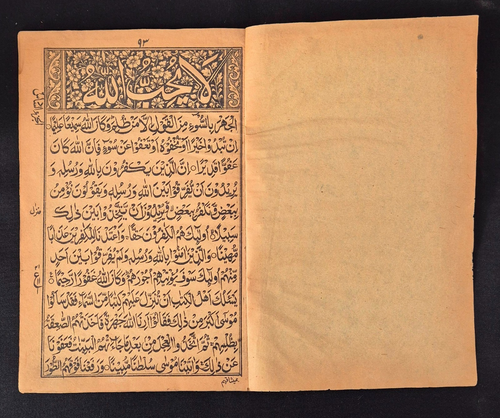 ۹۳
لَا يُحِبُّ اللّٰهُ
الْجَهْرَ بِالسُّوْٓءِ مِنَ الْقَوْلِ اِلَّا مَنْ ظُلِمَ وَكَانَ اللّٰهُ سَمِيْعًا عَلِيْمًا
اِنْ تُبْدُوْا خَيْرًا اَوْ تُخْفُوْهُ اَوْ تَعْفُوْا عَنْ سُوْٓءٍ فَاِنَّ اللّٰهَ كَانَ
عَفُوًّا قَدِيْرًا اِنَّ الَّذِيْنَ يَكْفُرُوْنَ بِاللّٰهِ وَرُسُلِهٖ وَ
يُرِيْدُوْنَ اَنْ يُّفَرِّقُوْا بَيْنَ اللّٰهِ وَرُسُلِهٖ وَيَقُوْلُوْنَ نُؤْمِنُ
بِبَعْضٍ وَّنَكْفُرُ بِبَعْضٍ وَّيُرِيْدُوْنَ اَنْ يَّتَّخِذُوْا بَيْنَ ذٰلِكَ
سَبِيْلًا اُولٰٓئِكَ هُمُ الْكٰفِرُوْنَ حَقًّا وَاَعْتَدْنَا لِلْكٰفِرِيْنَ عَذَابًا
مُّهِيْنًا وَالَّذِيْنَ اٰمَنُوْا بِاللّٰهِ وَرُسُلِهٖ وَلَمْ يُفَرِّقُوْا بَيْنَ اَحَدٍ
مِّنْهُمْ اُولٰٓئِكَ سَوْفَ يُؤْتِيْهِمْ اُجُوْرَهُمْ وَكَانَ اللّٰهُ غَفُوْرًا رَّحِيْمًا
يَسْـَٔلُكَ اَهْلُ الْكِتٰبِ اَنْ تُنَزِّلَ عَلَيْهِمْ كِتٰبًا مِّنَ السَّمَآءِ فَقَدْ سَاَلُوْا
مُوْسٰٓى اَكْبَرَ مِنْ ذٰلِكَ فَقَالُوْٓا اَرِنَا اللّٰهَ جَهْرَةً فَاَخَذَتْهُمُ الصّٰعِقَةُ
بِظُلْمِهِمْ ثُمَّ اتَّخَذُوا الْعِجْلَ مِنْ بَعْدِ مَا جَآءَتْهُمُ الْبَيِّنٰتُ فَعَفَوْنَا
عَنْ ذٰلِكَ وَاٰتَيْنَا مُوْسٰى سُلْطٰنًا مُّبِيْنًا وَرَفَعْنَا فَوْقَهُمُ الطُّوْرَ
بميثاقهم
منزل
ع